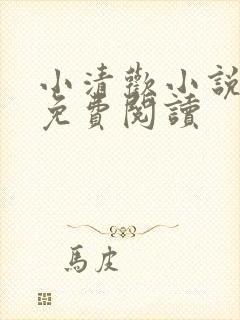 小清歡小說
免費閱讀
馬皮